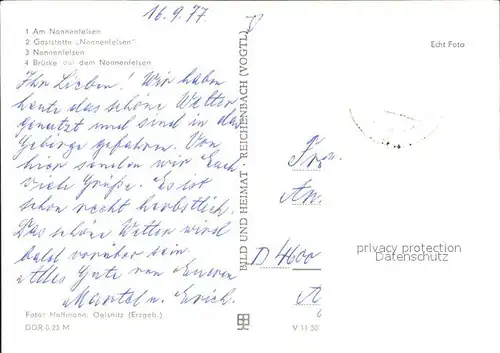 16.9.77
1 Am Nonnenfelsen
2 Gaststätte „Nonnenfelsen"
3 Nonnenfelsen
4 Brücke auf dem Nonnenfelsen
Echt Foto
Ihr Lieben! Wir haben
heute das schöne Wetter
genutzt und sind in das
Gebirge gefahren. Von
hier senden wir Euch
viele Grüße. Es ist
schon recht herbstlich.
Das schöne Wetter wird
bald vorüber sein.
Alles Gute von Eueren
u. Erich.
BILD UND HEIMAT REICHENBACH (VOGTL)
D
privacy protection
Datenschutz
Foto: Hoffmann, Oelsnitz (Erzgeb.)
DDR 0,25 M
V 11 50